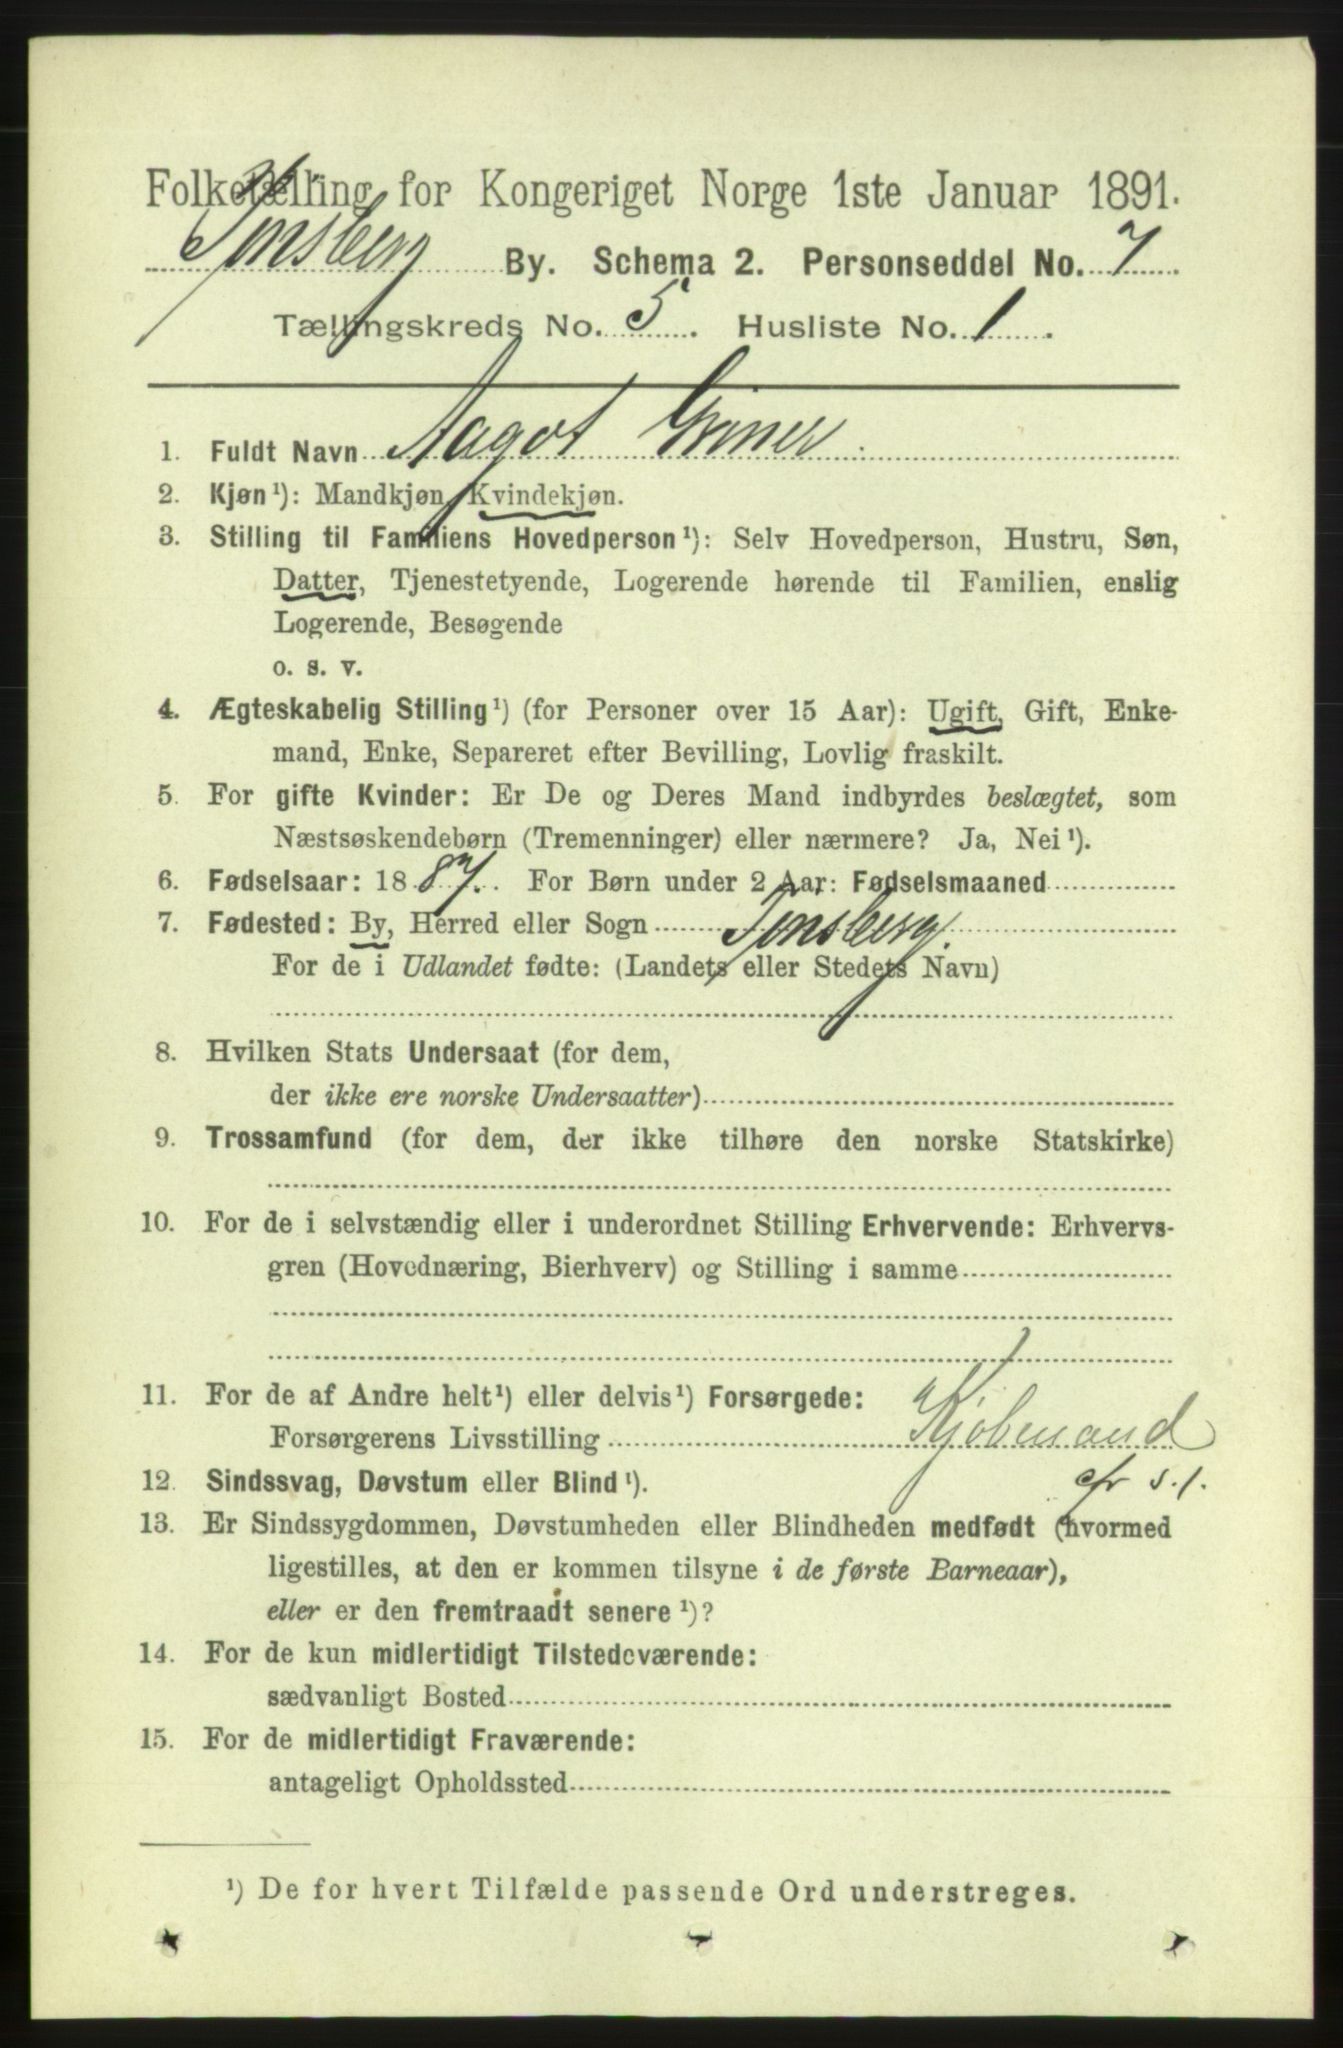 Folketælling for Kongeriget Norge 1ste Januar 1891.
Tønsberg By. Schema 2. Personseddel No. 7
Tællingskreds No. 5. Husliste No. 1.
1. Fuldt Navn Aagot Griner
2. Kjøn¹): Mandkjøn, Kvindekjøn.
3. Stilling til Familiens Hovedperson¹): Selv Hovedperson, Hustru, Søn,
Datter, Tjenestetyende, Logerende hørende til Familien, enslig
Logerende, Besøgende
o. s. v.
4. Ægteskabelig Stilling¹) (for Personer over 15 Aar): Ugift, Gift, Enke-
mand, Enke, Separeret efter Bevilling, Lovlig fraskilt.
5. For gifte Kvinder: Er De og Deres Mand indbyrdes beslægtet, som
Næstsøskendebørn (Tremenninger) eller nærmere? Ja, Nei¹).
6. Fødselsaar: 1887. For Børn under 2 Aar: Fødselsmaaned
7. Fødested: By, Herred eller Sogn Tønsberg.
For de i Udlandet fødte: (Landets eller Stedets Navn)
8. Hvilken Stats Undersaat (for dem,
der ikke ere norske Undersaatter)
9. Trossamfund (for dem, der ikke tilhøre den norske Statskirke)
10. For de i selvstændig eller i underordnet Stilling Erhvervende: Erhvervs-
gren (Hovednæring, Bierhverv) og Stilling i samme
11. For de af Andre helt¹) eller delvis¹) Forsørgede:
Forsørgerens Livsstilling Kjøbmand
12. Sindssvag, Døvstum eller Blind¹). cfr s. 1.
13. Er Sindssygdommen, Døvstumheden eller Blindheden medfødt (hvormed
ligestilles, at den er kommen tilsyne i de første Barneaar),
eller er den fremtraadt senere¹)?
14. For de kun midlertidigt Tilstedeværende:
sædvanligt Bosted
15. For de midlertidigt Fraværende:
antageligt Opholdssted
¹) De for hvert Tilfælde passende Ord understreges.